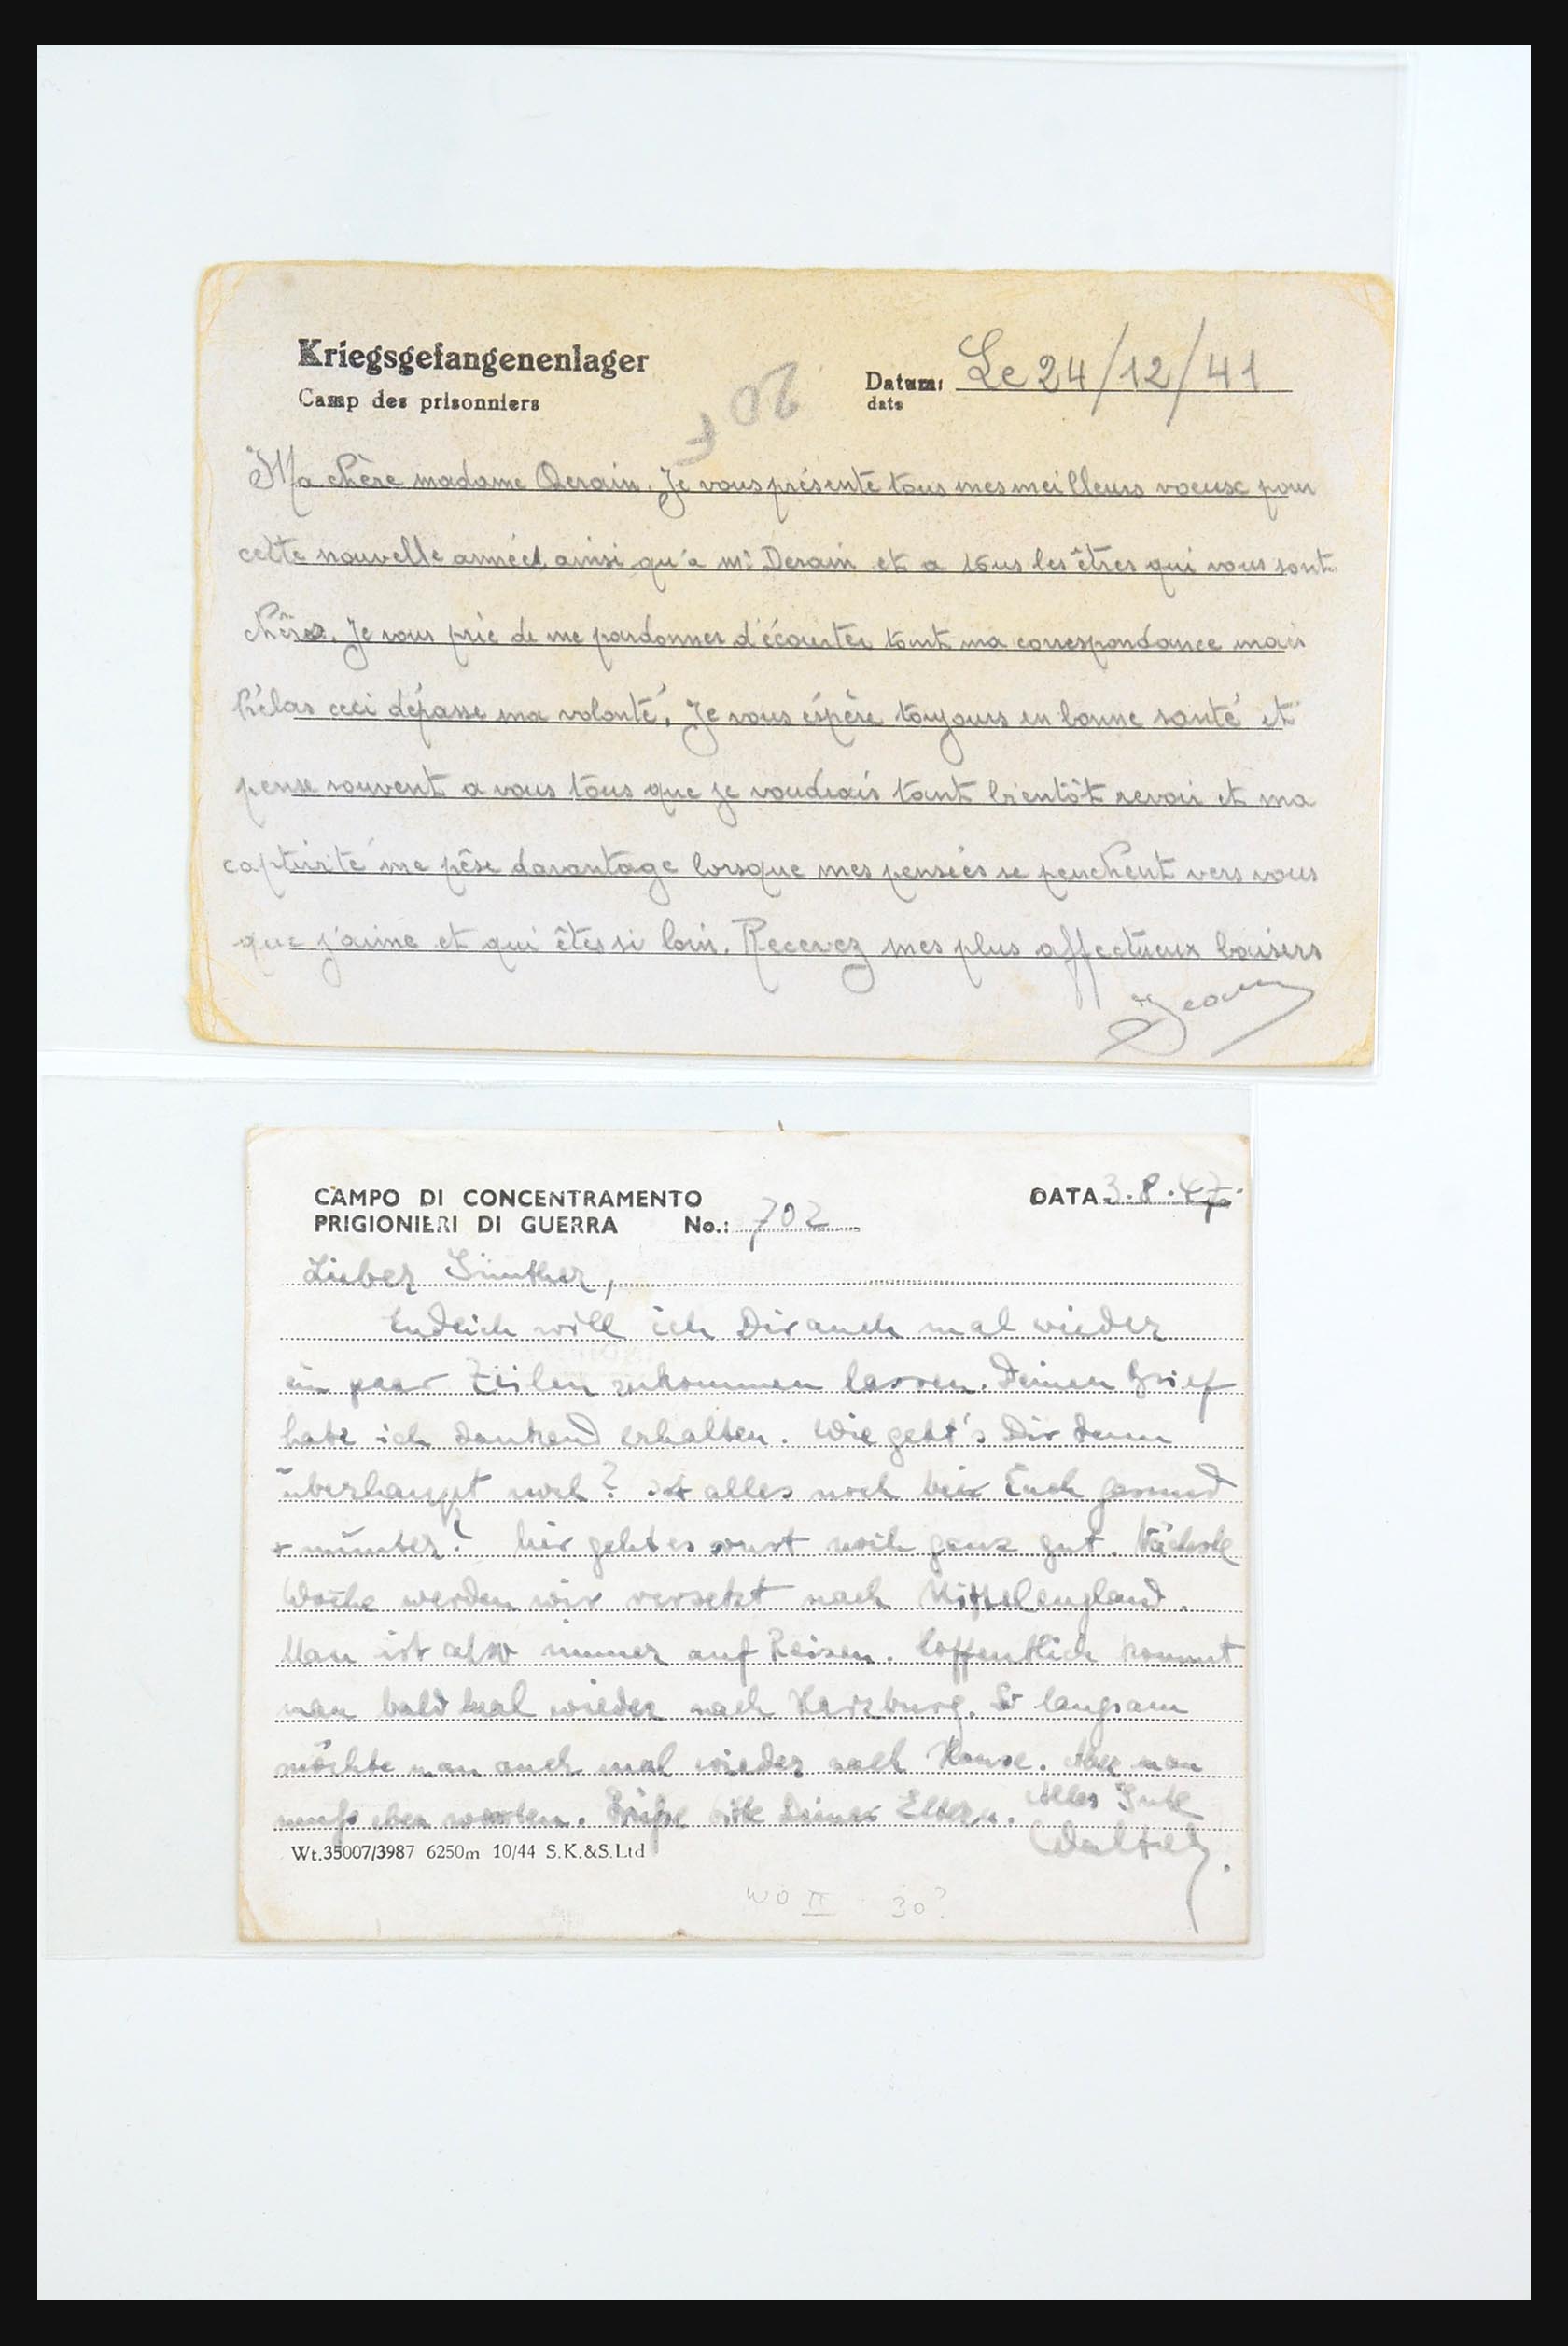 Kriegsgefangenenlager
Camp des prisonniers
Datum: Le 24/12/41
date
20 F
Ma chère madame Derain. Je vous présente tous mes meilleurs voeux pour
cette nouvelle année, ainsi qu'a mr Derain et a tous les êtres qui vous sont
chères. Je vous prie de me pardonner d'écourter tant ma correspondance mais
hélas ceci dépasse ma volonté. Je vous éspère toujours en bonne santé et
pense souvent a vous tous que je voudrais tant bientôt revoir et ma
captivité me pêse davantage lorsque mes pensées se penchent vers vous
que j'aime et qui êtes si loin. Recevez mes plus affectueux baisers
Jean
CAMPO DI CONCENTRAMENTO
PRIGIONIERI DI GUERRA No.: 702
DATA 3.8.47
Lieber Günther,
Endlich will ich Dir auch mal wieder
ein paar Zeilen zukommen lassen. Deinen Brief
habe ich dankend erhalten. Wie geht's Dir denn
überhaupt noch? Ist alles noch bei Euch gesund
+ munter? Mir geht es sonst noch ganz gut. Nächste
Woche werden wir versetzt nach Mittelengland.
Man ist also immer auf Reisen. Hoffentlich kommt
man bald mal wieder nach Harzburg. So langsam
möchte man auch mal wieder nach Hause. Aber man
muß eben warten. Grüße bitte Deine Eltern. Alles Gute
Walter.
Wt.35007/3987 6250m 10/44 S.K.&S.Ltd
WO II 30?